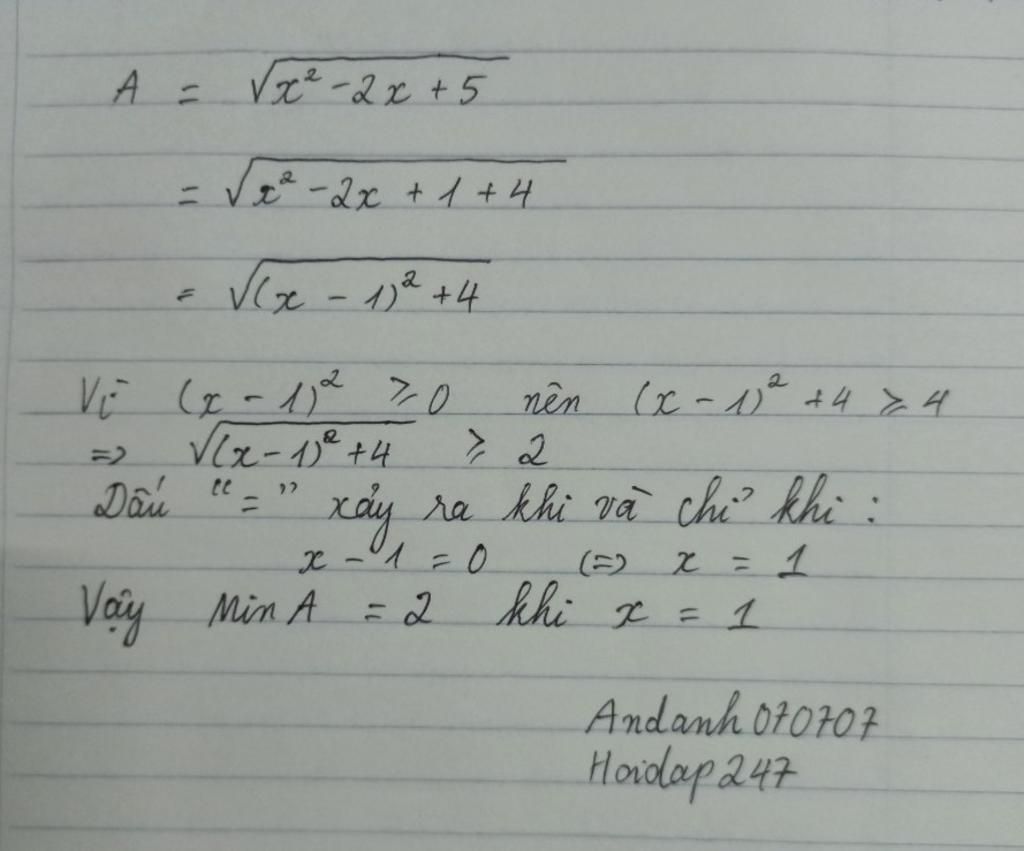 A = √(x² - 2x + 5)
= √(x² - 2x + 1 + 4)
= √((x - 1)² + 4)
Vì (x - 1)² ≥ 0 nên (x - 1)² + 4 ≥ 4
=> √((x - 1)² + 4) ≥ 2
Dấu “=” xảy ra khi và chỉ khi :
x - 1 = 0 (=) x = 1
Vậy Min A = 2 khi x = 1
Andanh070707
Hoidap247